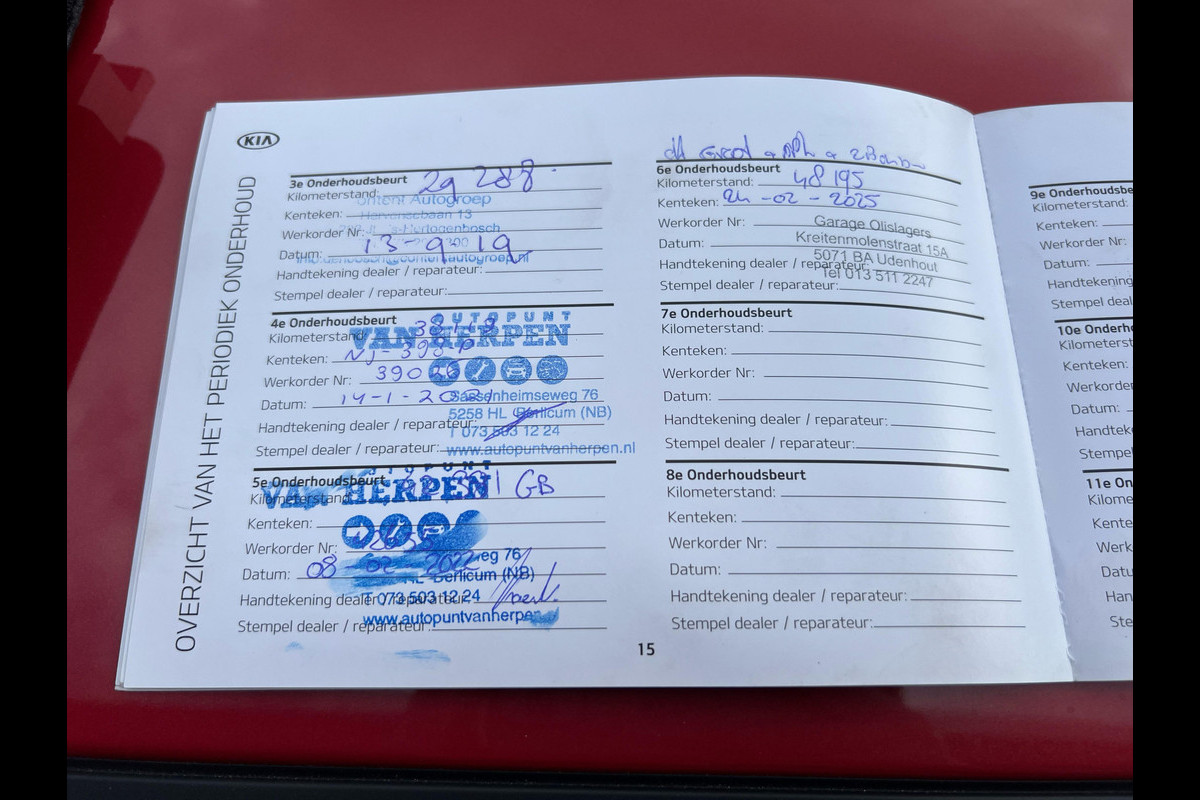 KIA
OVERZICHT VAN HET PERIODIEK ONDERHOUD
3e Onderhoudsbeurt
Kilometerstand: 29 288
Kenteken:
Werkorder Nr:
Datum: 13-9-19
Handtekening dealer / reparateur:
Stempel dealer / reparateur:
Autogroep
Hervensebaan 13
's-Hertogenbosch
4e Onderhoudsbeurt
Kilometerstand:
Kenteken: NJ-398-P
Werkorder Nr: 39026
Datum: 14-1-2021
Handtekening dealer / reparateur:
Stempel dealer / reparateur:
AUTOPUNT
VAN HERPEN
Sassenheimseweg 76
5258 HL Berlicum (NB)
T 073 503 12 24
www.autopuntvanherpen.nl
5e Onderhoudsbeurt
Kilometerstand: GB
Kenteken:
Werkorder Nr:
Datum: 08 02 2022
Handtekening dealer / reparateur:
Stempel dealer / reparateur:
VAN HERPEN
weg 76
HL Berlicum (NB)
T 073 503 12 24
www.autopuntvanherpen
6e Onderhoudsbeurt
Kilometerstand: 48 195
Kenteken: 24-02-2025
Werkorder Nr:
Datum:
Handtekening dealer / reparateur:
Stempel dealer / reparateur:
Garage Olislagers
Kreitenmolenstraat 15A
5071 BA Udenhout
Tel 013 511 2247
7e Onderhoudsbeurt
Kilometerstand:
Kenteken:
Werkorder Nr:
Datum:
Handtekening dealer / reparateur:
Stempel dealer / reparateur:
8e Onderhoudsbeurt
Kilometerstand:
Kenteken:
Werkorder Nr:
Datum:
Handtekening dealer / reparateur:
Stempel dealer / reparateur:
15
9e Onderhoudsbe
Kilometerstand:
Kenteken:
Werkorder Nr:
Datum:
Handtekening
Stempel deal
10e Onderh
Kilometerst
Kenteken:
Werkorder
Datum:
Handtek
Stempe
11e On
Kilome
Kente
Werk
Datu
Han
Ste